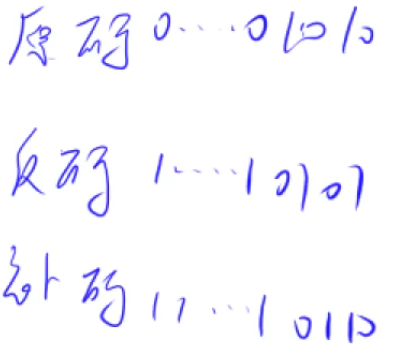 原码 0·····01010
反码 1·····10101
补码 11···10110